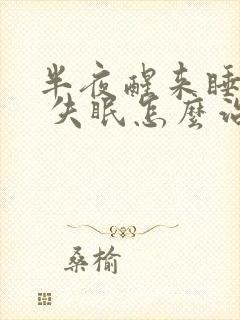 半夜醒来睡
失眠怎麽治
桑榆